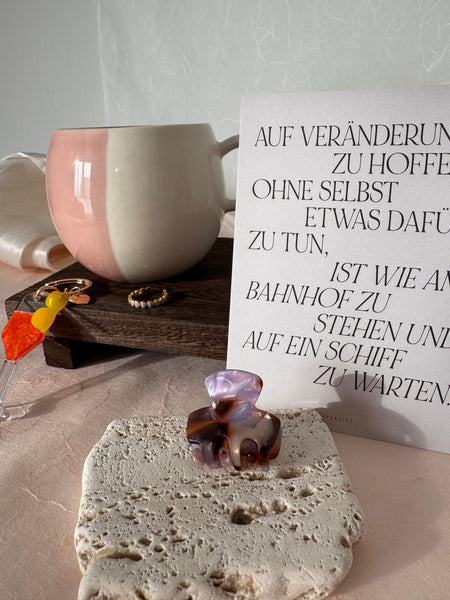 AUF VERÄNDERUN
ZU HOFFE
OHNE SELBST
ETWAS DAFÜ
ZU TUN,
IST WIE AM
BAHNHOF ZU
STEHEN UND
AUF EIN SCHIFF
ZU WARTEN.